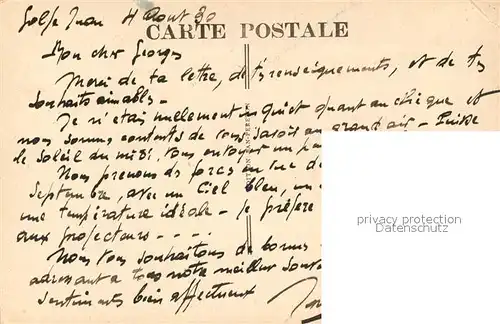 Golfe Juan 4 Aout 30
CARTE POSTALE
Mon cher Georges
Merci de ta lettre, de tes renseignements, et de tes
souhaits aimables -
Je n'étais nullement inquiet quant au chèque et
nous sommes contents de vous savoir au grand air - Puisse
le soleil du midi, vous envoyer un
Nous prenons des forces en vue de
Septembre, avec un Ciel bleu, un
une température idéale - Je préfère
aux projecteurs - - - -
Nous vous souhaitons de bonnes
adressant à tous notre meilleur
sentiments bien affectueux
privacy protection
Datenschutz